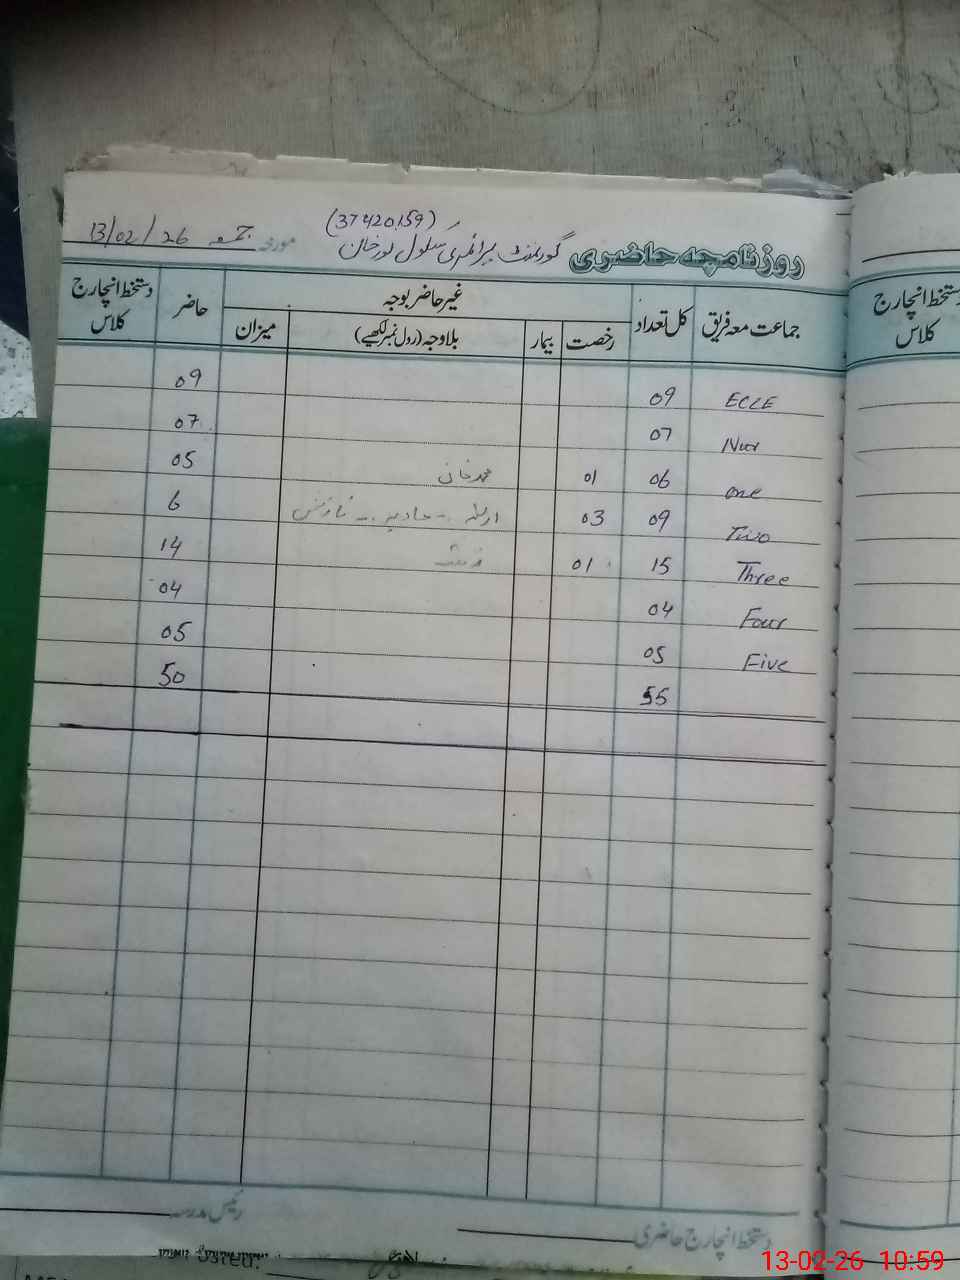 (37420159)
روزنامچہ حاضری گورنمنٹ پرائمری سکول نور خان مورخہ جمعہ 13/02/26
جماعت معہ فریق کل تعداد غیر حاضر بوجہ حاضر دستخط انچارج کلاس
رخصت بیمار بلاوجہ (رول نمبر لکھیے) میزان
ECCE 09 09
Nur 07 07
one 06 01 محمد خان 05
Two 09 03 6
Three 15 01 14
Four 04 04
Five 05 05
55 50
دستخط انچارج حاضری رئیس مدرسہ
دستخط انچارج
کلاس
13-02-26 10:59